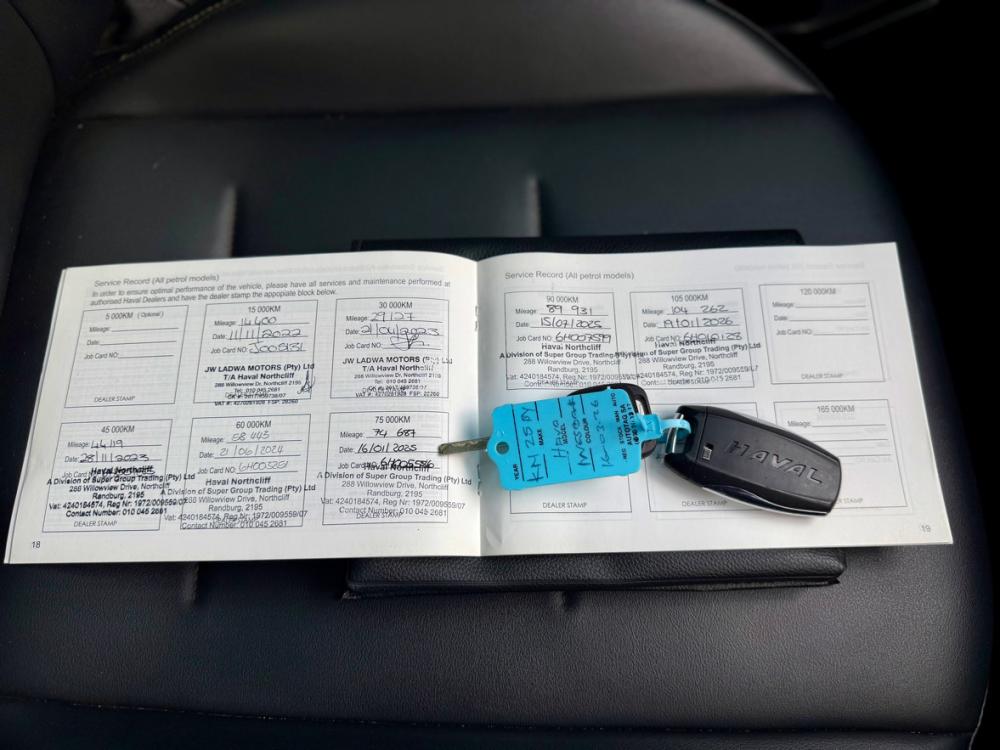 Service Record (All petrol models)
In order to ensure optimal performance of the vehicle, please have all services and maintenance performed at
authorised Haval Dealers and have the dealer stamp the appopiate block below.
5 000KM (Optional)
Mileage:
Date:
Job Card NO:
DEALER STAMP
15 000KM
Mileage: 14400
Date: 11/11/2022
Job Card NO:
JW LADWA MOTORS (Pty) Ltd
T/A Haval Northcliff
288 Willowview Dr, Northcliff 2195
Tel: 010 045 2681
30 000KM
Mileage: 29127
Date: 21/04/2023
Job Card NO:
JW LADWA MOTORS
T/A Haval Northcliff
288 Willowview Dr, Northcliff
Tel: 010 045 2681
45 000KM
Mileage: 44119
Date: 28/11/2023
Job Card NO:
Haval Northcliff
A Division of Super Group Trading (Pty) Ltd
288 Willowview Drive, Northcliff
Randburg, 2195
Vat: 4240184574, Reg Nr: 1972/009559/07
Contact Number: 010 045 2681
DEALER STAMP
60 000KM
Mileage: 58 445
Date: 21/06/2024
Job Card NO: 6H005251
Haval Northcliff
A Division of Super Group Trading (Pty) Ltd
288 Willowview Drive, Northcliff
Randburg, 2195
Vat: 4240184574, Reg Nr: 1972/009559/07
Contact Number: 010 045 2681
75 000KM
Mileage: 74 687
Date: 16/01/2025
Job Card NO:
Haval Northcliff
A Division of Super Group Trading (Pty) Ltd
288 Willowview Drive, Northcliff
Randburg, 2195
Vat: 4240184574, Reg Nr: 1972/009559/07
Contact Number: 010 045 2681
DEALER STAMP
18
Service Record (All petrol models)
90 000KM
Mileage: 89 931
Date: 15/07/2025
Job Card NO:
Haval Northcliff
A Division of Super Group Trading (Pty) Ltd
288 Willowview Drive, Northcliff
Randburg, 2195
105 000KM
Mileage: 104 262
Date: 19/01/2026
Job Card NO: 6H010128
Haval Northcliff
A Division of Super Group Trading (Pty) Ltd
288 Willowview Drive, Northcliff
Randburg, 2195
Vat: 4240184574, Reg Nr: 1972/009559/07
Contact Number: 010 045 2681
120 000KM
Mileage:
Date:
Job Card NO:
DEALER STAMP
165 000KM
Mileage:
Date:
Job Card NO:
DEALER STAMP
DEALER STAMP
DEALER STAMP
19
YEAR
MAKE
MODEL
COLOUR
REG
STOCK
MAN
AUTO
AUTOTAG SA
HAVAL